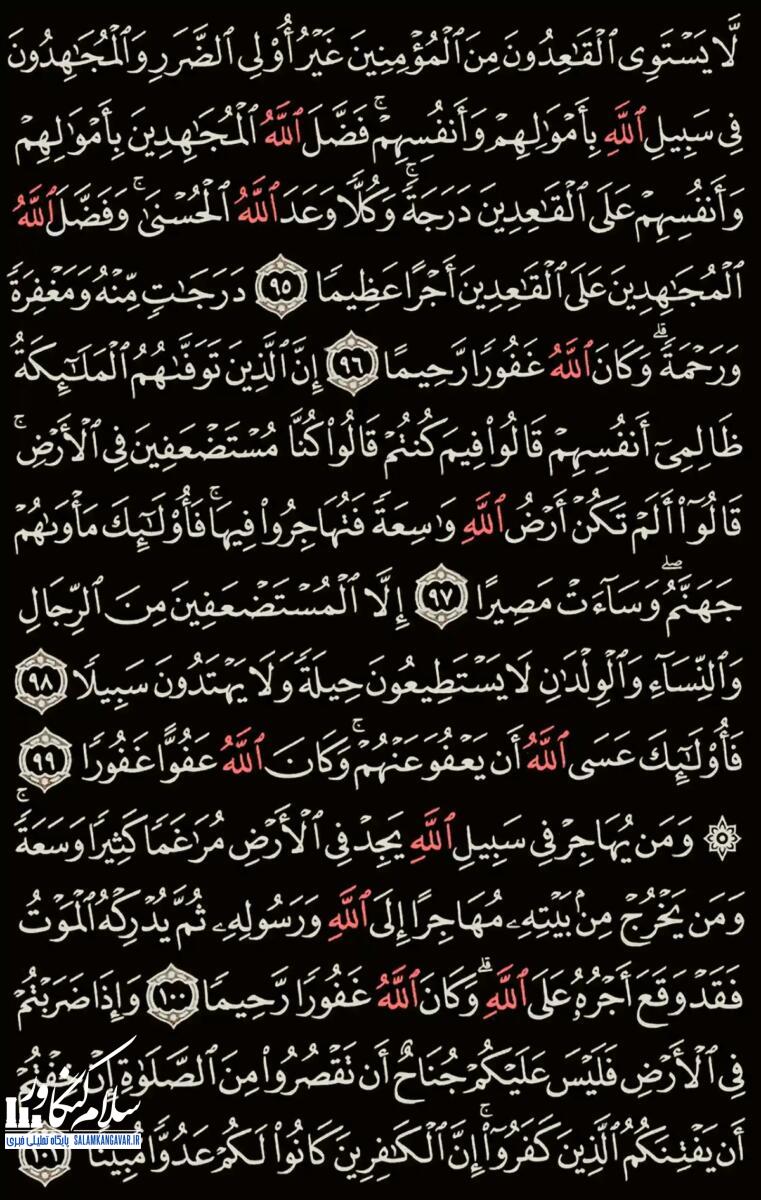 لَّا يَسْتَوِى ٱلْقَـٰعِدُونَ مِنَ ٱلْمُؤْمِنِينَ غَيْرُ أُو۟لِى ٱلضَّرَرِ وَٱلْمُجَـٰهِدُونَ
فِى سَبِيلِ ٱللَّهِ بِأَمْوَٰلِهِمْ وَأَنفُسِهِمْ ۚ فَضَّلَ ٱللَّهُ ٱلْمُجَـٰهِدِينَ بِأَمْوَٰلِهِمْ
وَأَنفُسِهِمْ عَلَى ٱلْقَـٰعِدِينَ دَرَجَةً ۚ وَكُلًّا وَعَدَ ٱللَّهُ ٱلْحُسْنَىٰ ۚ وَفَضَّلَ ٱللَّهُ
ٱلْمُجَـٰهِدِينَ عَلَى ٱلْقَـٰعِدِينَ أَجْرًا عَظِيمًا ٩٥ دَرَجَـٰتٍ مِّنْهُ وَمَغْفِرَةً
وَرَحْمَةً ۚ وَكَانَ ٱللَّهُ غَفُورًا رَّحِيمًا ٩٦ إِنَّ ٱلَّذِينَ تَوَفَّىٰهُمُ ٱلْمَلَـٰٓئِكَةُ
ظَالِمِىٓ أَنفُسِهِمْ قَالُوا۟ فِيمَ كُنتُمْ ۖ قَالُوا۟ كُنَّا مُسْتَضْعَفِينَ فِى ٱلْأَرْضِ ۚ
قَالُوٓا۟ أَلَمْ تَكُنْ أَرْضُ ٱللَّهِ وَٰسِعَةً فَتُهَاجِرُوا۟ فِيهَا ۚ فَأُو۟لَـٰٓئِكَ مَأْوَىٰهُمْ
جَهَنَّمُ ۖ وَسَآءَتْ مَصِيرًا ٩٧ إِلَّا ٱلْمُسْتَضْعَفِينَ مِنَ ٱلرِّجَالِ
وَٱلنِّسَآءِ وَٱلْوِلْدَٰنِ لَا يَسْتَطِيعُونَ حِيلَةً وَلَا يَهْتَدُونَ سَبِيلًا ٩٨
فَأُو۟لَـٰٓئِكَ عَسَى ٱللَّهُ أَن يَعْفُوَ عَنْهُمْ ۚ وَكَانَ ٱللَّهُ عَفُوًّا غَفُورًا ٩٩
۞ وَمَن يُهَاجِرْ فِى سَبِيلِ ٱللَّهِ يَجِدْ فِى ٱلْأَرْضِ مُرَٰغَمًا كَثِيرًا وَسَعَةً ۚ
وَمَن يَخْرُجْ مِنۢ بَيْتِهِۦ مُهَاجِرًا إِلَى ٱللَّهِ وَرَسُولِهِۦ ثُمَّ يُدْرِكْهُ ٱلْمَوْتُ
فَقَدْ وَقَعَ أَجْرُهُۥ عَلَى ٱللَّهِ ۗ وَكَانَ ٱللَّهُ غَفُورًا رَّحِيمًا ١٠٠ وَإِذَا ضَرَبْتُمْ
فِى ٱلْأَرْضِ فَلَيْسَ عَلَيْكُمْ جُنَاحٌ أَن تَقْصُرُوا۟ مِنَ ٱلصَّلَوٰةِ إِنْ خِفْتُمْ
أَن يَفْتِنَكُمُ ٱلَّذِينَ كَفَرُوٓا۟ ۚ إِنَّ ٱلْكَـٰفِرِينَ كَانُوا۟ لَكُمْ عَدُوًّا مُّبِينًا ١٠١
سلام کنگاور
پایگاه تحلیلی خبری SALAMKANGAVAR.IR